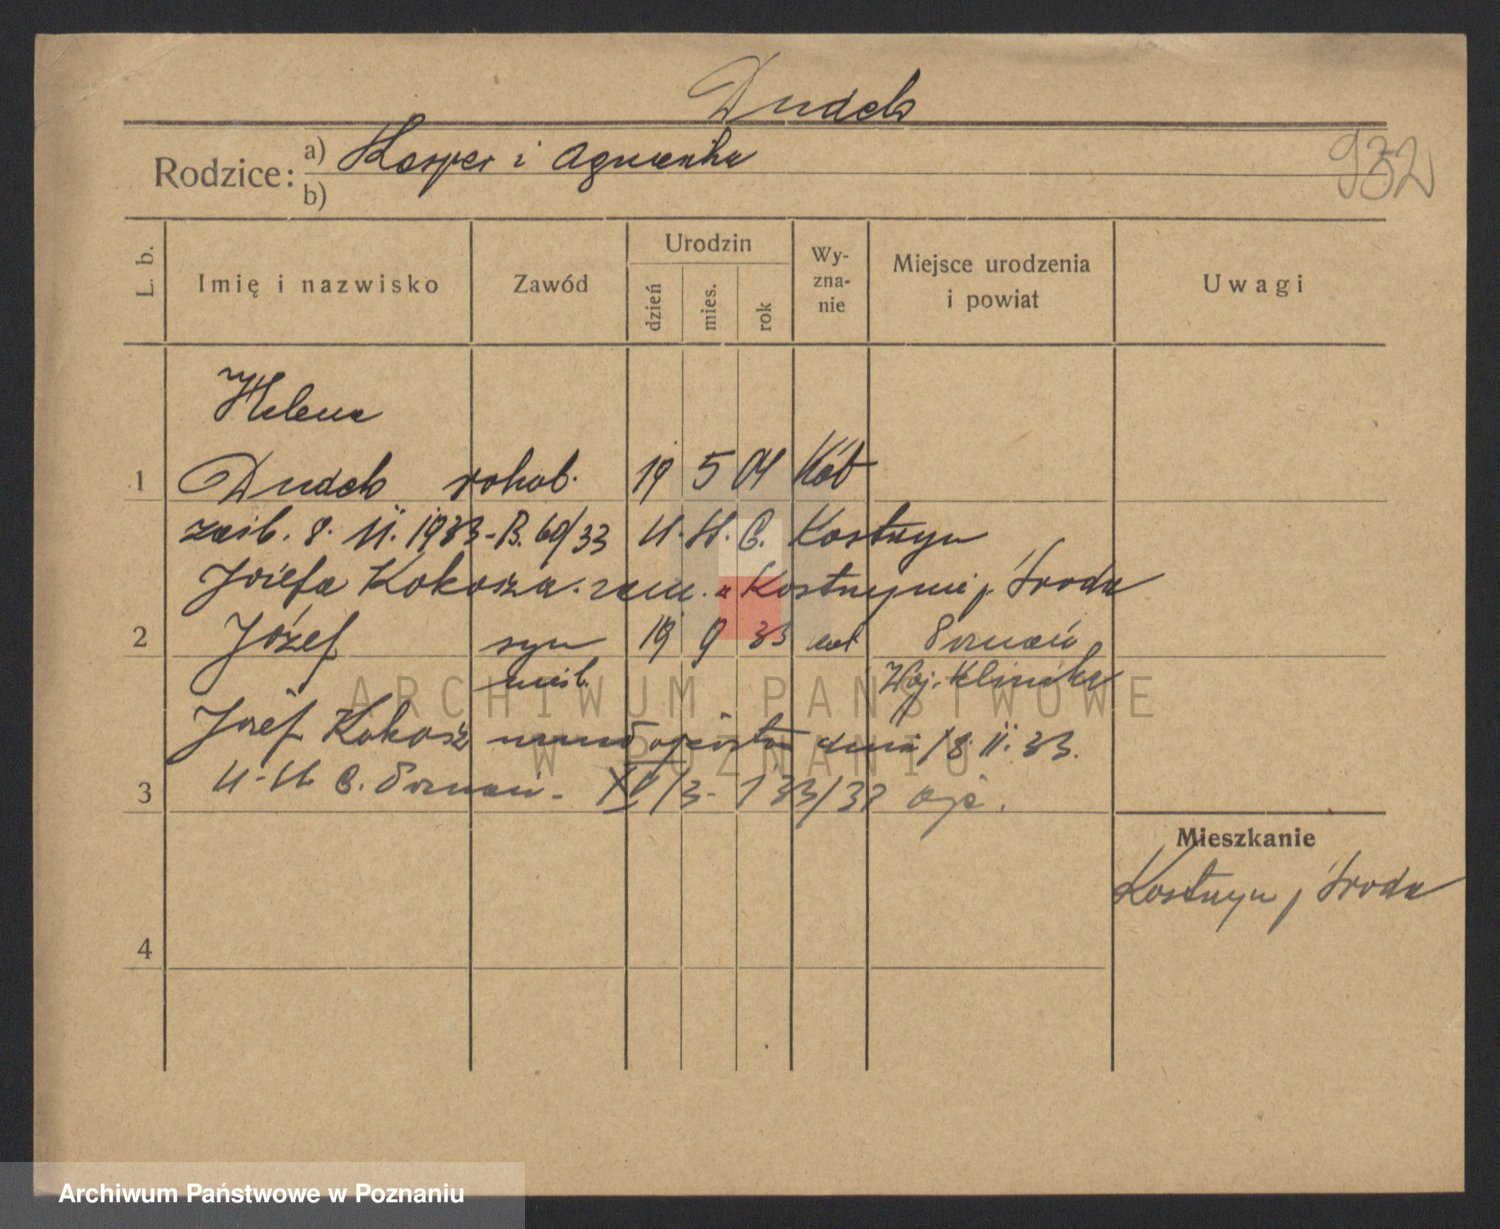 Dudek
932
Rodzice: a) Kasper i Agnieszka
b)
L. b. Imię i nazwisko Zawód Urodzin dzień mies. rok Wy-zna-nie Miejsce urodzenia i powiat Uwagi
Helena
1 Dudek robot. 19 5 04 Kat
zaśl. 8. 11. 1933 - B. 60/33 U. St. C. Kostrzyn
Józefa Kokosza. zam. w Kostrzynie p. Środa
2 Józef syn 19 9 33 kat Poznań
nieśl. Woj. Klinika
Józef Kokosz uznał ojcostwo dnia 18. 11. 33.
3 U. St. C. Poznań - 133/33
Mieszkanie
Kostrzyn p. Środa
4
ARCHIWUM PAŃSTWOWE
W POZNANIU
Archiwum Państwowe w Poznaniu